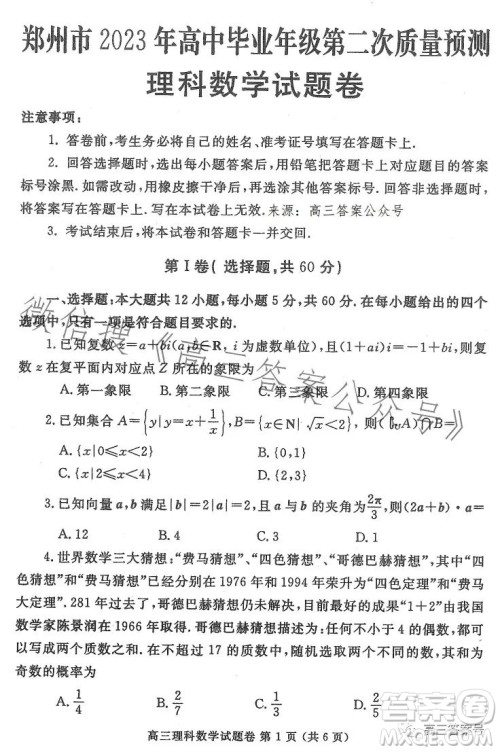 郑州市 2023 年高中毕业年级第二次质量预测
理科数学试题卷
注意事项：
1. 答卷前，考生务必将自己的姓名、准考证号填写在答题卡上．
2. 回答选择题时，选出每小题答案后，用铅笔把答题卡上对应题目的答案
标号涂黑．如需改动，用橡皮擦干净后，再选涂其他答案标号．回答非选择题时，
将答案写在答题卡上．写在本试卷上无效．来源：高三答案公众号
3. 考试结束后，将本试卷和答题卡一并交回．
第 Ⅰ 卷（选择题，共 60 分）
一、选择题：本大题共 12 小题，每小题 5 分，共 60 分．在每小题给出的四个
选项中，只有一项是符合题目要求的．
1. 已知复数 z=a+bi(a,b∈R, i 为虚数单位)，且(1+ai)i=-1-bi，则复数
z 在复平面内对应点 Z 所在的象限为
A. 第一象限 B. 第二象限 C. 第三象限 D. 第四象限
2. 已知集合 A={y|y=x+1/x}，B={x∈N|√x<2}，则(∁ᵤA)∩B=
A. {x|0≤x<2} B. {0,1}
C. {x|-2<x<2} D. {1}
3. 已知向量 a,b 满足 2|a|=|b|=2，且 a 与 b 的夹角为 2π/3，则(2a+b)·a=
A. 12 B. 4 C. 3 D. 1
4. 世界数学三大猜想：“费马猜想”、“四色猜想”、“哥德巴赫猜想”，其中“四
色猜想”和“费马猜想”已经分别在 1976 年和 1994 年荣升为“四色定理”和“费马
大定理”．281 年过去了，哥德巴赫猜想仍未解决，目前最好的成果“1+2”由我国
数学家陈景润在 1966 年取得．哥德巴赫猜想描述为：任何不小于 4 的偶数，都可
以写成两个质数之和．在不超过 17 的质数中，随机选取两个不同的数，其和为
奇数的概率为
A. 1/4 B. 2/7 C. 1/3 D. 2/5
高三理科数学试题卷 第 1 页（共 6 页）
微信搜《高三答案公众号》